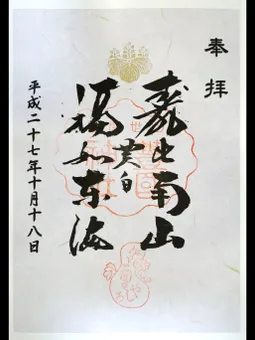 奉拝
壽比南山
福如東海
豐國
神社
平成二十七年十月十八日